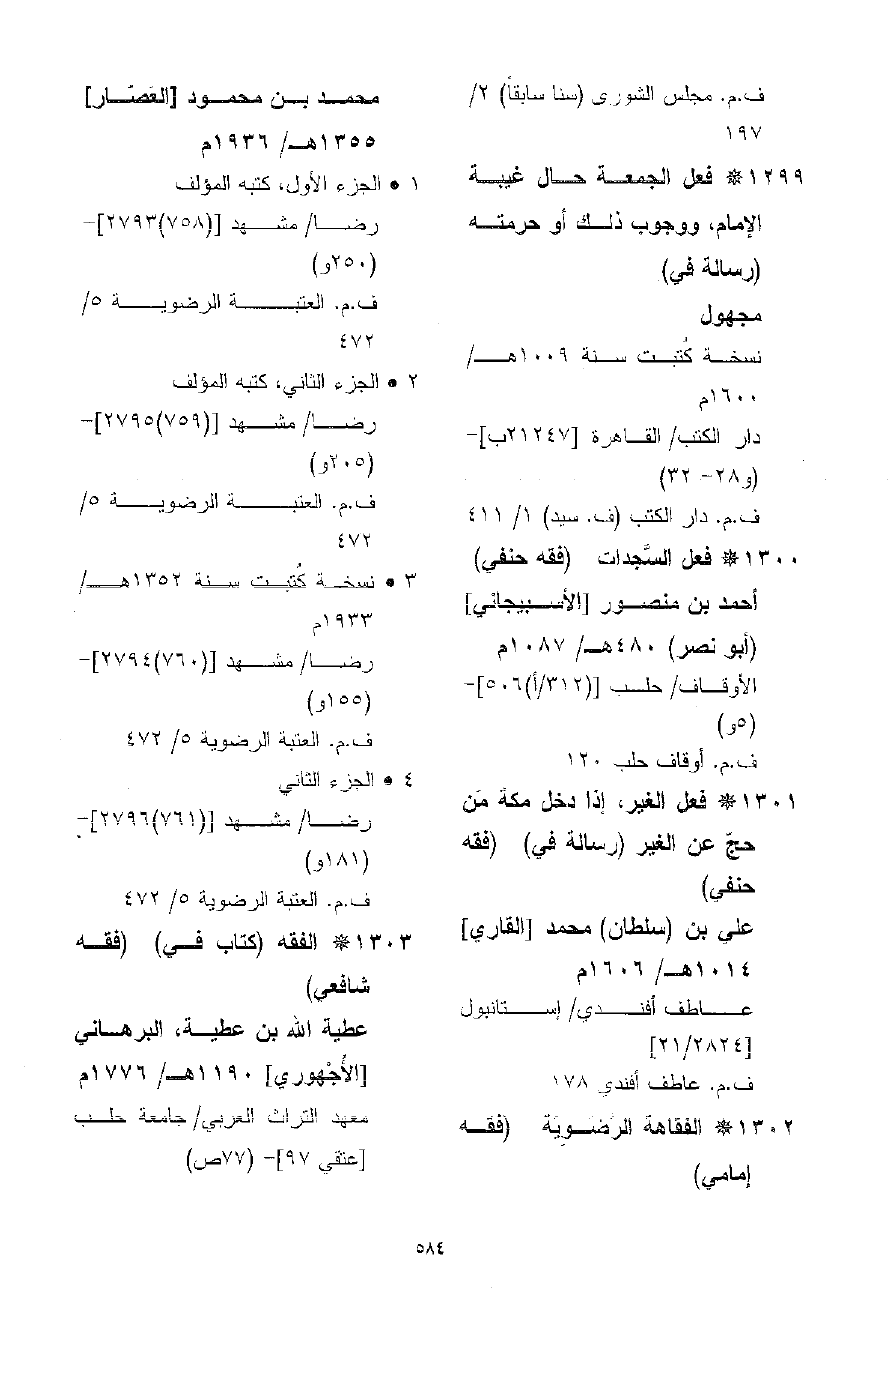 ف.م. مجلس الشورى (سنا سابقاً) ٢/
١٩٧
١٢٩٩* فعل الجمعة حال غيبة
الإمام، ووجوب ذلك أو حرمته
(رسالة في)
مجهول
نسخة كُتبت سنة ١٠٠٩هـ/
١٦٠٠م
دار الكتب/ القاهرة [٢١٢٤٧ب]-
(و٢٨- ٣٢)
ف.م. دار الكتب (ف. سيد) ١/ ٤١١
١٣٠٠* فعل السَّجدات (فقه حنفي)
أحمد بن منصور [الأسبيجاني]
(أبو نصر) ٤٨٠هـ/ ١٠٨٧م
الأوقاف/ حلب [(٣١٢/أ)٥٠٦]-
(٥و)
ف.م. أوقاف حلب ١٢٠
١٣٠١* فعل الغير، إذا دخل مكة مَن
حجّ عن الغير (رسالة في) (فقه
حنفي)
علي بن (سلطان) محمد [القاري]
١٠١٤هـ/ ١٦٠٦م
عاطف أفندي/ إستانبول
[٢١/٢٨٢٤]
ف.م. عاطف أفندي ١٧٨
١٣٠٢* الفقاهة الرَضَوِيّة (فقه
إمامي)
محمد بن محمود [العَصّار]
١٣٥٥هـ/ ١٩٣٦م
١ • الجزء الأول، كتبه المؤلف
رضا/ مشهد [(٧٥٨)٢٧٩٣]-
(٢٥٠و)
ف.م. العتبة الرضوية ٥/
٤٧٢
٢ • الجزء الثاني، كتبه المؤلف
رضا/ مشهد [(٧٥٩)٢٧٩٥]-
(٢٠٥و)
ف.م. العتبة الرضوية ٥/
٤٧٢
٣ • نسخة كُتبت سنة ١٣٥٢هـ/
١٩٣٣م
رضا/ مشهد [(٧٦٠)٢٧٩٤]-
(١٥٥و)
ف.م. العتبة الرضوية ٥/ ٤٧٢
٤ • الجزء الثاني
رضا/ مشهد [(٧٦١)٢٧٩٦]-
(١٨١و)
ف.م. العتبة الرضوية ٥/ ٤٧٢
١٣٠٣* الفقه (كتاب في) (فقه
شافعي)
عطية الله بن عطية، البرهاني
[الأُجْهوري] ١١٩٠هـ/ ١٧٧٦م
معهد التراث العربي/ جامعة حلب
[عنقي ٩٧]- (٧٧ص)
٥٨٤